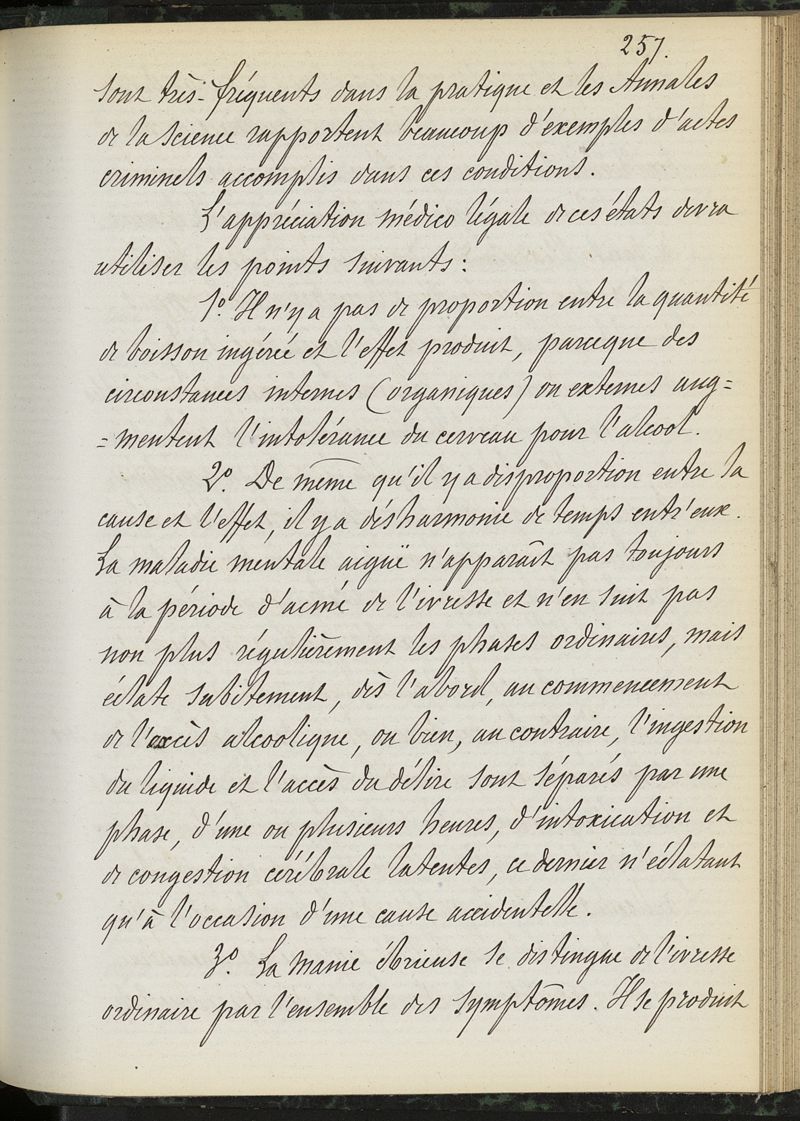 257.
sont très-fréquents dans la pratique et les Annales
de la Science rapportent beaucoup d'exemples d'actes
criminels accomplis dans ces conditions.
L'appréciation médico légale de ces états devra
utiliser les points suivants :
1º. Il n'y a pas de proportion entre la quantité
de boisson ingérée et l'effet produit, parceque des
circonstances internes (organiques) ou externes aug=
=mentent l'intolérance du cerveau pour l'alcool.
2º. De même qu'il y a disproportion entre la
cause et l'effet, il y a désharmonie de temps entr'eux.
La maladie mentale aiguë n'apparaît pas toujours
à la période d'acmé de l'ivresse et n'en suit pas
non plus régulièrement les phases ordinaires, mais
éclate subitement, dès l'abord, au commencement
de l'excès alcoolique, ou bien, au contraire, l'ingestion
du liquide et l'accès du délire sont séparés par une
phase, d'une ou plusieurs heures, d'intoxication et
de congestion cérébrale latentes, ce dernier n'éclatant
qu'à l'occasion d'une cause accidentelle.
3º. La Manie ébrieuse se distingue de l'ivresse
ordinaire par l'ensemble des symptômes. Il se produit